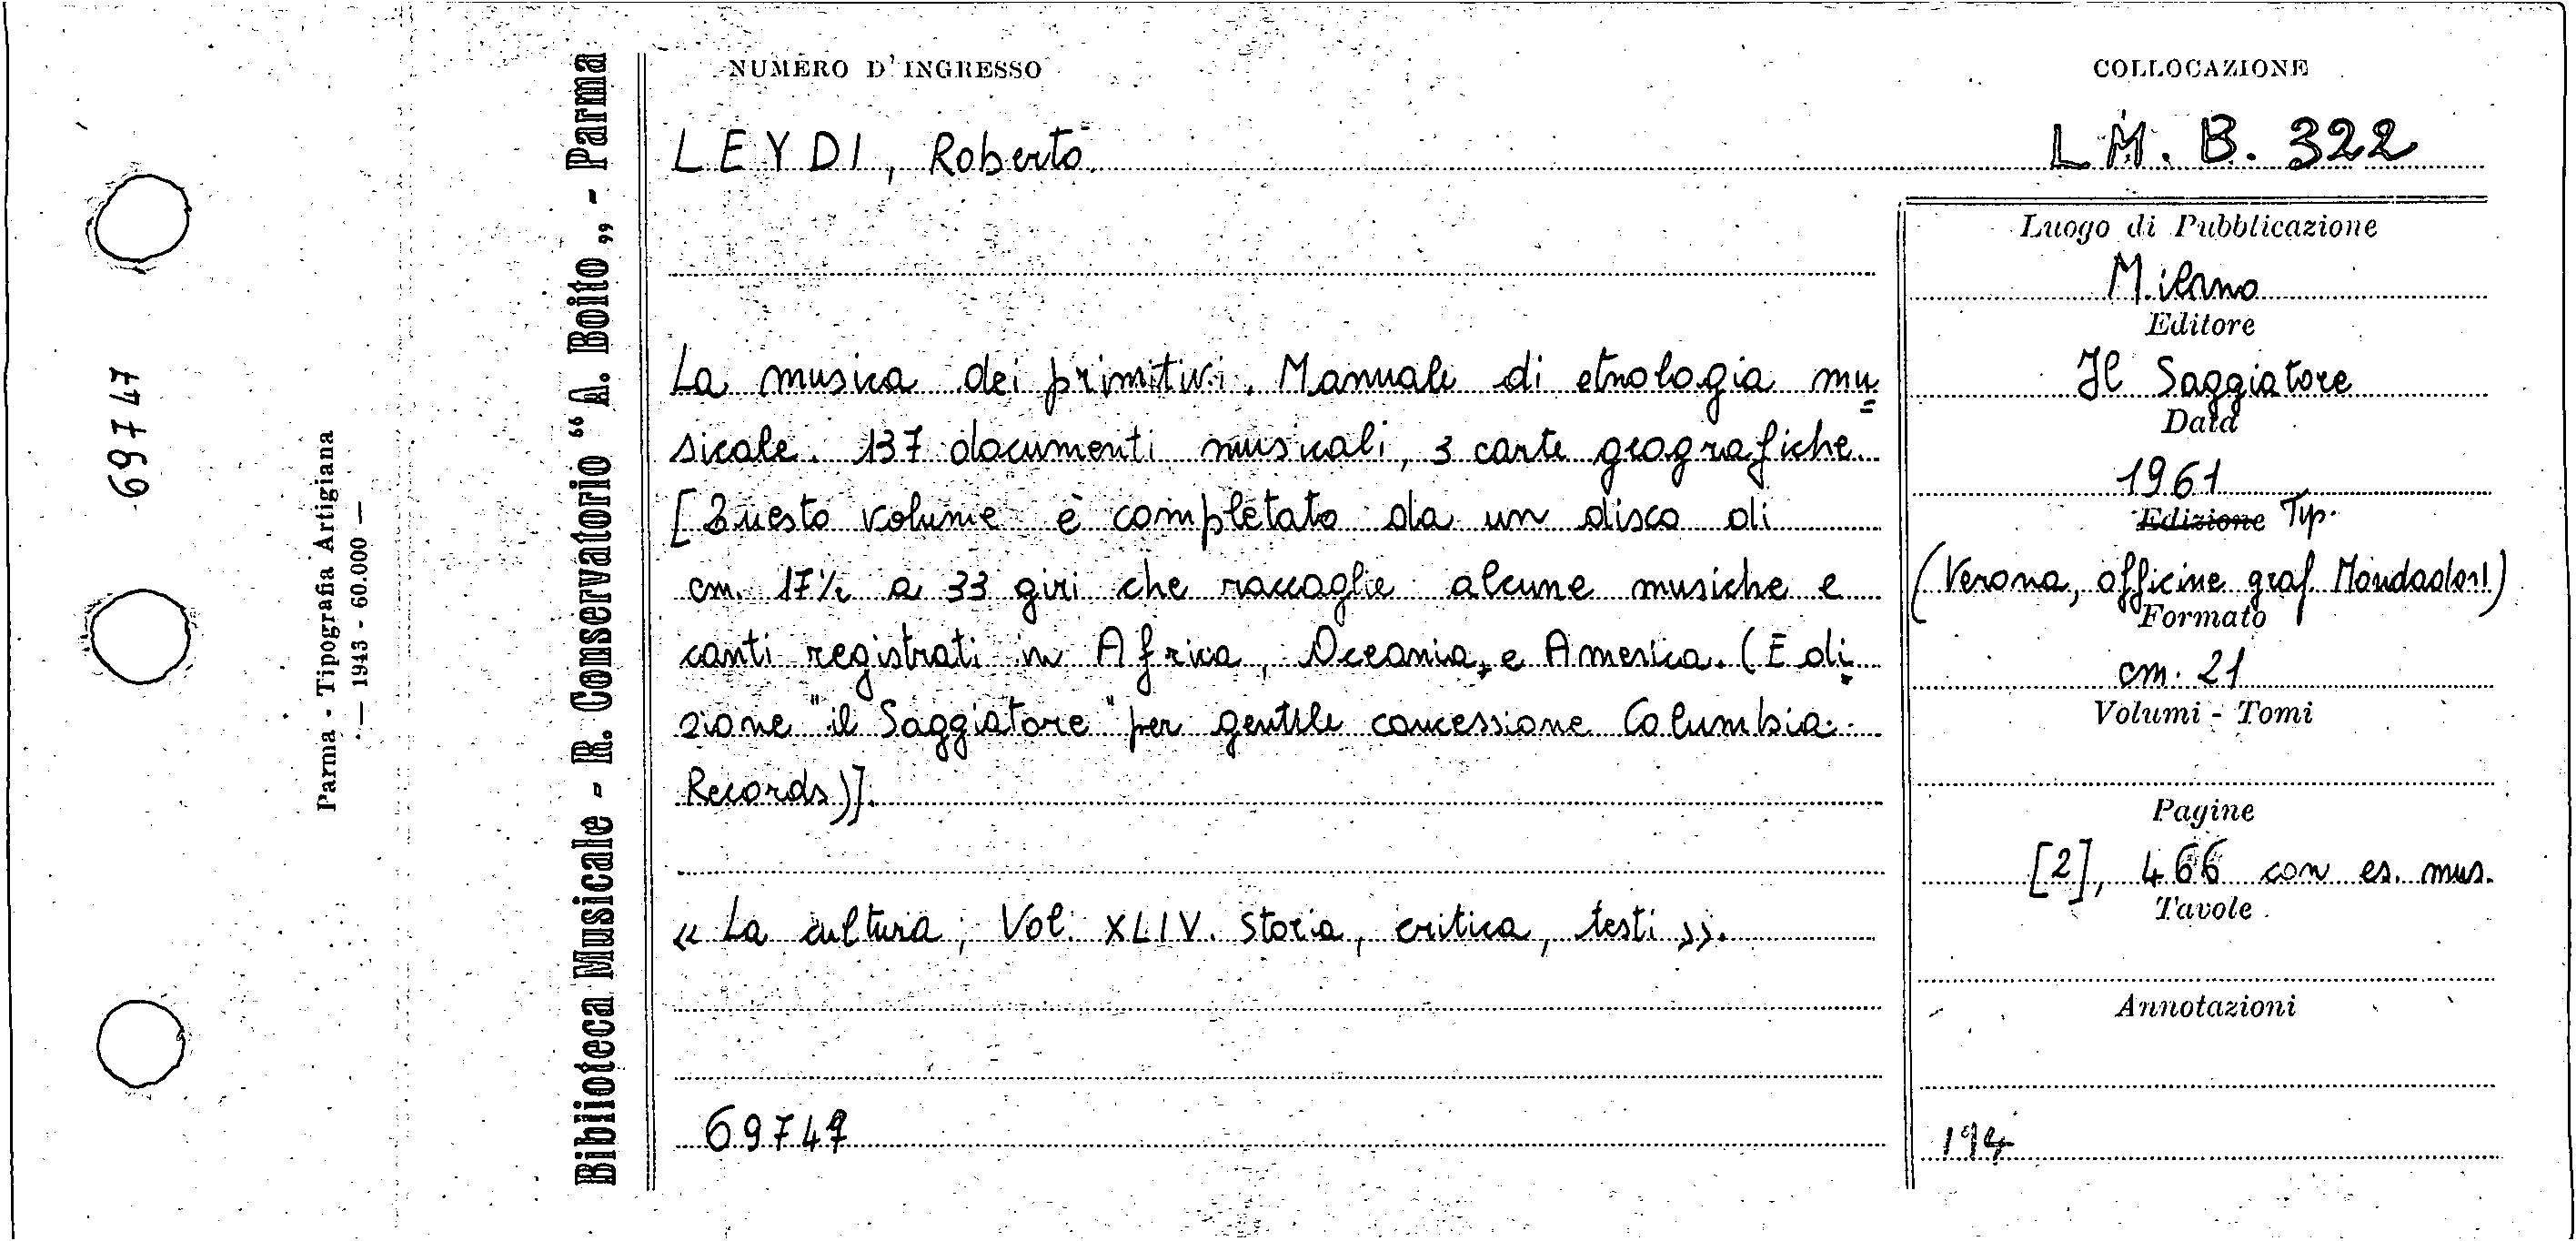 69747
Parma - Tipografia Artigiana
— 1943 - 60.000 —
Biblioteca Musicale - R. Conservatorio “A. Boito„ - Parma
NUMERO D'INGRESSO
COLLOCAZIONE
LEYDI, Roberto
L.M. B. 322
La musica dei primitivi. Manuale di etnologia mu=
sicale. 137 documenti musicali, 3 carte geografiche
[Questo volume è completato da un disco di
cm. 17½ a 33 giri che raccoglie alcune musiche e
canti registrati in Africa, Oceania, e America. (Edi-
zione "il Saggiatore" per gentile concessione Columbia
Records)].
« La cultura; Vol. XLIV. Storia, critica, testi ».
69747
Luogo di Pubblicazione
Milano
Editore
Il Saggiatore
Data
1961
Edizione Tip.
(Verona, officine graf. Mondadori)
Formato
cm. 21
Volumi - Tomi
Pagine
[2], 466 con es. mus.
Tavole
Annotazioni